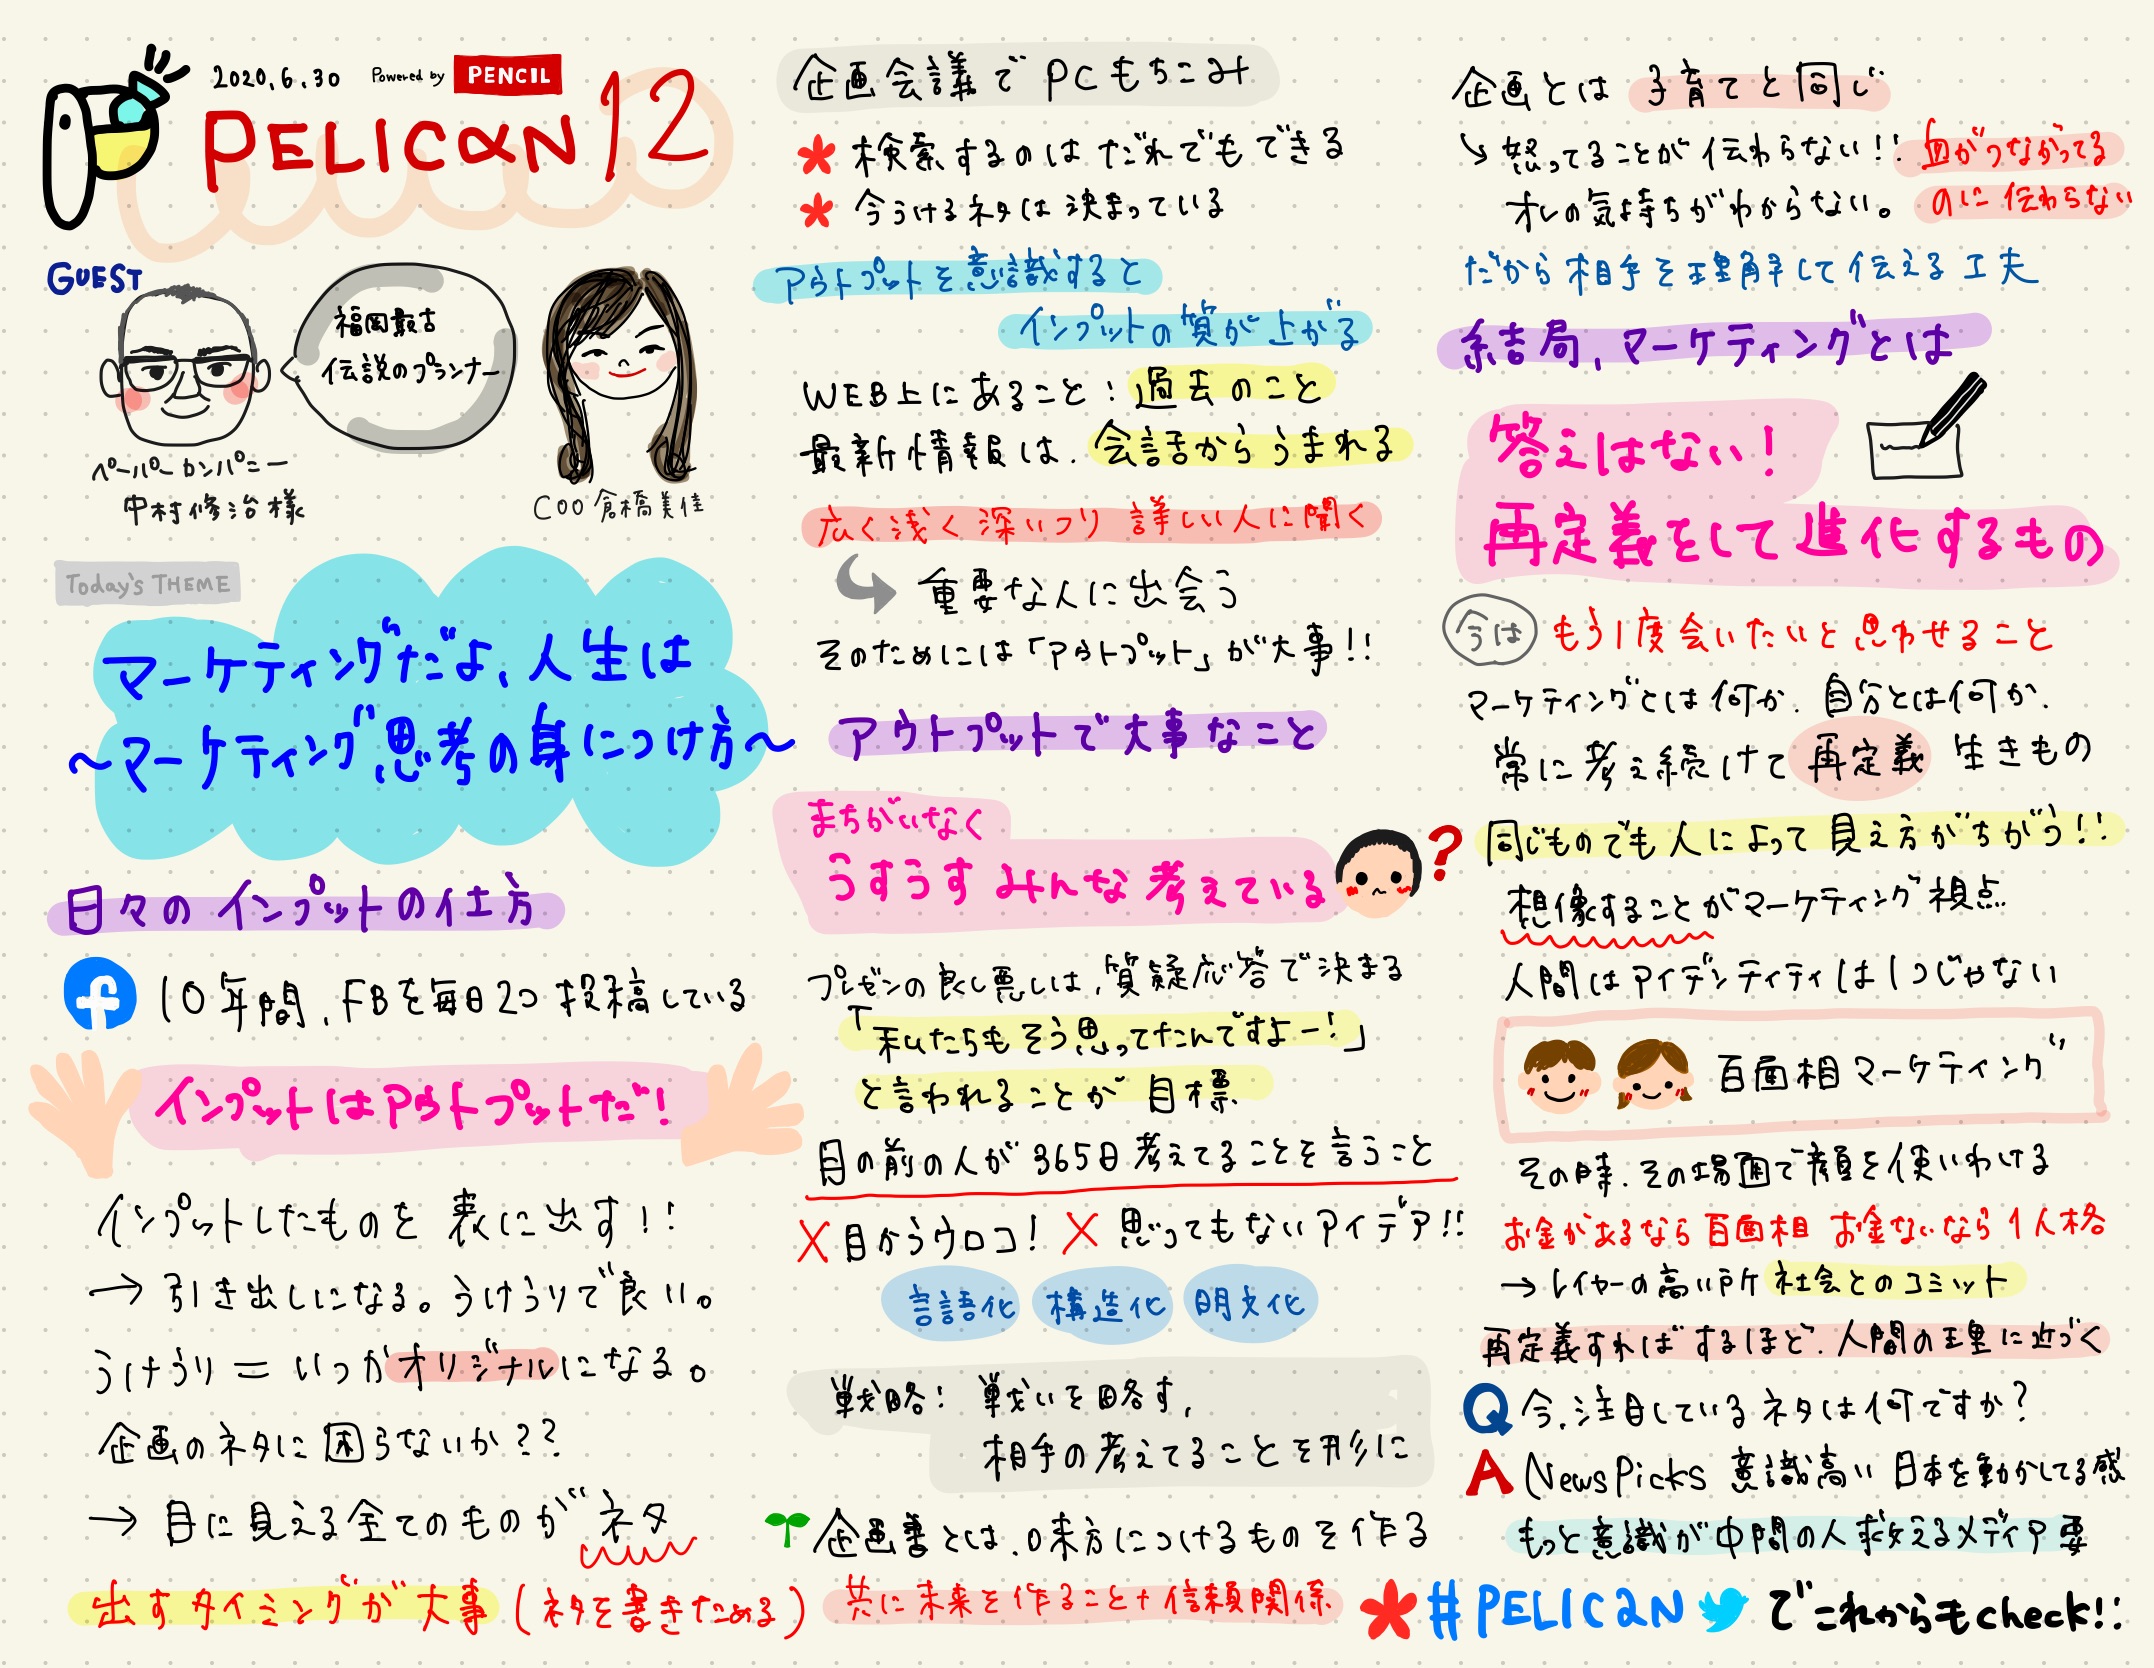 2020.6.30 Powered by PENCIL
PELICAN 12
GUEST
福岡最古
伝説のプランナー
ペーパーカンパニー
中村修治様
COO 倉橋美佳
Today's THEME
マーケティングだよ、人生は
〜マーケティング思考の身につけ方〜
日々のインプットの仕方
10年間、FBを毎日2つ投稿している
インプットはアウトプットだ!
インプットしたものを表に出す!!
→ 引き出しになる。うけうりで良い。
うけうり = いつかオリジナルになる。
企画のネタに困らないか??
→ 目に見える全てのものがネタ
出すタイミングが大事(ネタを書きためる)
企画会議でPCもちこみ
* 検索するのはだれでもできる
* 今うけるネタは決まっている
アウトプットを意識すると
インプットの質が上がる
WEB上にあること:過去のこと
最新情報は、会話からうまれる
広く浅く深いフリ 詳しい人に聞く
重要な人に出会う
そのためには「アウトプット」が大事!!
アウトプットで大事なこと
まちがいなく
うすうすみんな考えている
?
プレゼンの良し悪しは、質疑応答で決まる
「私たちもそう思ってたんですよー!」
と言われることが目標
目の前の人が365日考えてることを言うこと
X 目からウロコ! X 思ってもないアイデア!!
言語化 構造化 明文化
戦略! 戦いを略す、
相手の考えてることを形に
企画書とは、味方につけるものを作る
共に未来を作ること+信頼関係
企画とは 子育てと同じ
↘ 怒ってることが伝わらない!! 血がつながってる
オレの気持ちがわからない。 のに伝わらない
だから相手を理解して伝える工夫
結局、マーケティングとは
答えはない!
再定義をして進化するもの
今は もう1度会いたいと思わせること
マーケティングとは何か、自分とは何か、
常に考え続けて再定義 生きもの
同じものでも人によって見え方がちがう!!
想像することがマーケティング視点
人間はアイデンティティは1つじゃない
百面相マーケティング
その時、その場面で顔を使いわける
お金があるなら百面相 お金ないなら1人格
→ レイヤーの高い所 社会とのコミット
再定義すればするほど、人間の理に近づく
Q 今、注目しているネタは何ですか?
A NewsPicks 意識高い 日本を動かしてる感
もっと意識が中間の人教えるメディア要
* #PELICAN でこれからもcheck!!